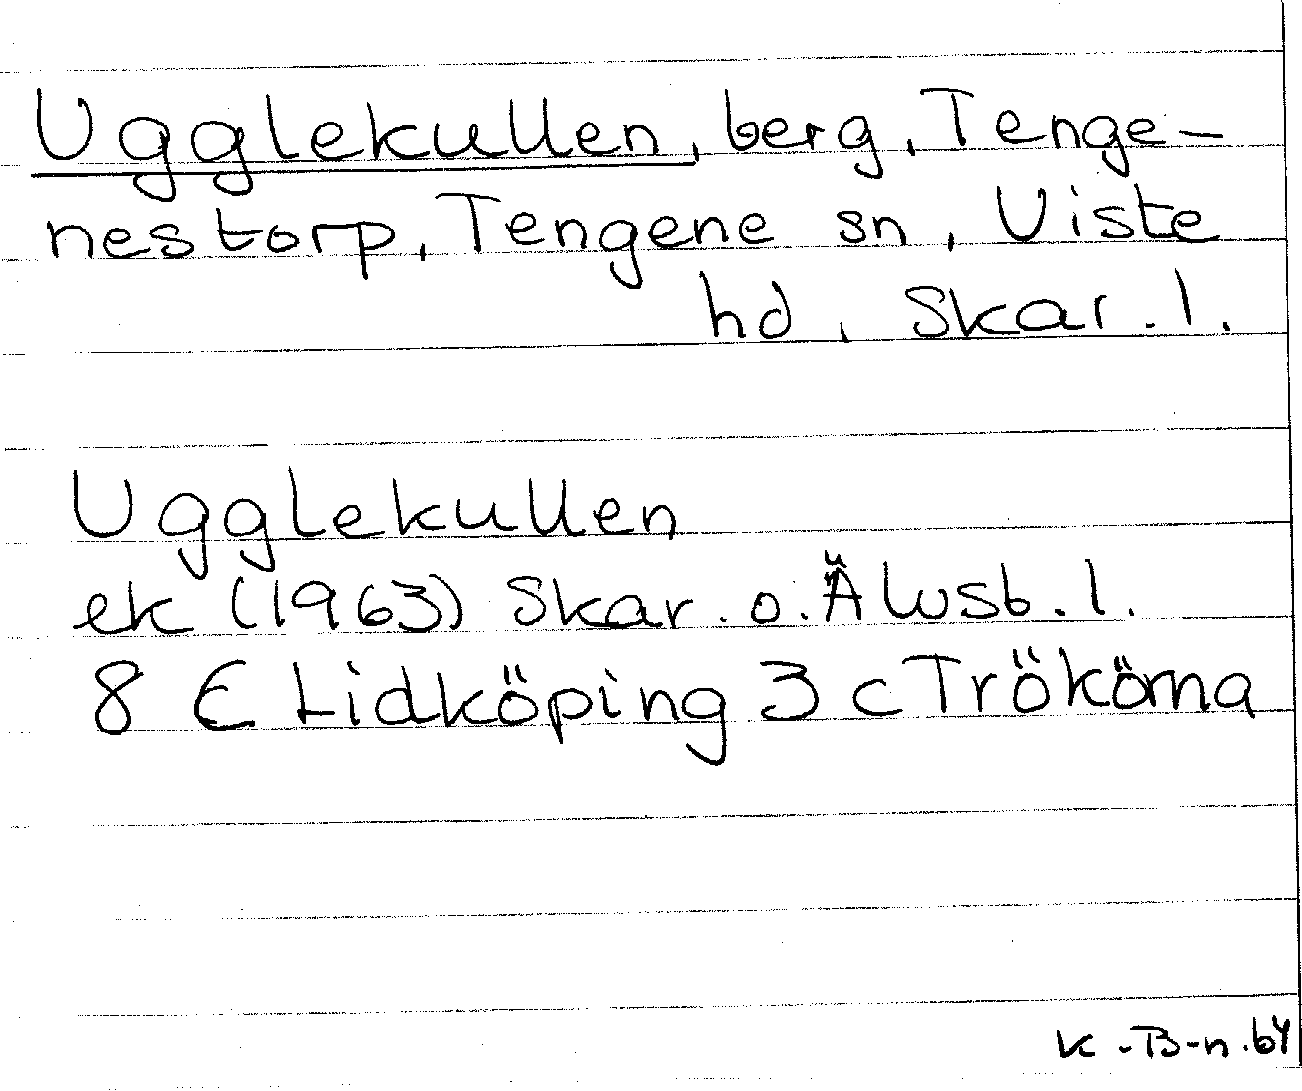 Ugglekullen, berg, Tenge-
nestorp, Tengene sn, Viste
hd, Skar. l.
Ugglekullen
ek (1963) Skar. o. Älvsb. l.
8 C Lidköping 3 c Trökörna
K.-B-n. 64